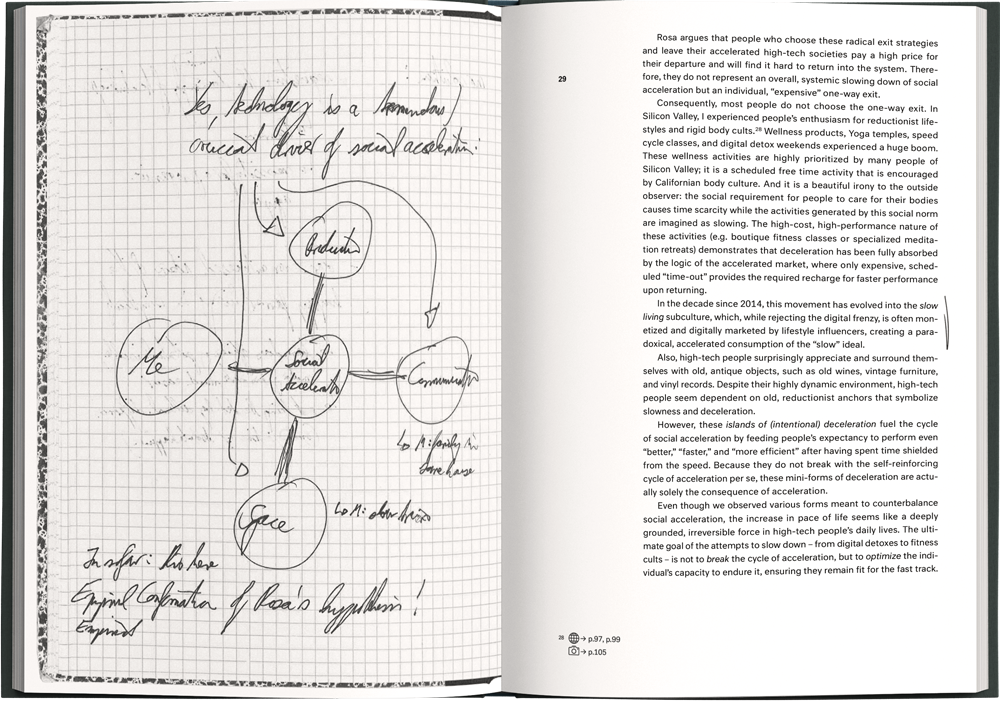 Yes, technology is a tremendous/
crucial driver of social acceleration:
Production
Me
Social
Acceleration
Communication
↳ M: family in
same house
Space
↳ M:
In sofar: this here
Empirical Confirmation of Rosa's hypothesis!
Empirical
29
Rosa argues that people who choose these radical exit strategies
and leave their accelerated high-tech societies pay a high price for
their departure and will find it hard to return into the system. There-
fore, they do not represent an overall, systemic slowing down of social
acceleration but an individual, "expensive" one-way exit.
Consequently, most people do not choose the one-way exit. In
Silicon Valley, I experienced people's enthusiasm for reductionist life-
styles and rigid body cults.28 Wellness products, Yoga temples, speed
cycle classes, and digital detox weekends experienced a huge boom.
These wellness activities are highly prioritized by many people of
Silicon Valley; it is a scheduled free time activity that is encouraged
by Californian body culture. And it is a beautiful irony to the outside
observer: the social requirement for people to care for their bodies
causes time scarcity while the activities generated by this social norm
are imagined as slowing. The high-cost, high-performance nature of
these activities (e.g. boutique fitness classes or specialized medita-
tion retreats) demonstrates that deceleration has been fully absorbed
by the logic of the accelerated market, where only expensive, sched-
uled "time-out" provides the required recharge for faster performance
upon returning.
In the decade since 2014, this movement has evolved into the slow
living subculture, which, while rejecting the digital frenzy, is often mon-
etized and digitally marketed by lifestyle influencers, creating a para-
doxical, accelerated consumption of the "slow" ideal.
Also, high-tech people surprisingly appreciate and surround them-
selves with old, antique objects, such as old wines, vintage furniture,
and vinyl records. Despite their highly dynamic environment, high-tech
people seem dependent on old, reductionist anchors that symbolize
slowness and deceleration.
However, these islands of (intentional) deceleration fuel the cycle
of social acceleration by feeding people's expectancy to perform even
"better," "faster," and "more efficient" after having spent time shielded
from the speed. Because they do not break with the self-reinforcing
cycle of acceleration per se, these mini-forms of deceleration are actu-
ally solely the consequence of acceleration.
Even though we observed various forms meant to counterbalance
social acceleration, the increase in pace of life seems like a deeply
grounded, irreversible force in high-tech people's daily lives. The ulti-
mate goal of the attempts to slow down – from digital detoxes to fitness
cults – is not to break the cycle of acceleration, but to optimize the indi-
vidual's capacity to endure it, ensuring they remain fit for the fast track.
28 → p.97, p.99
→ p.105